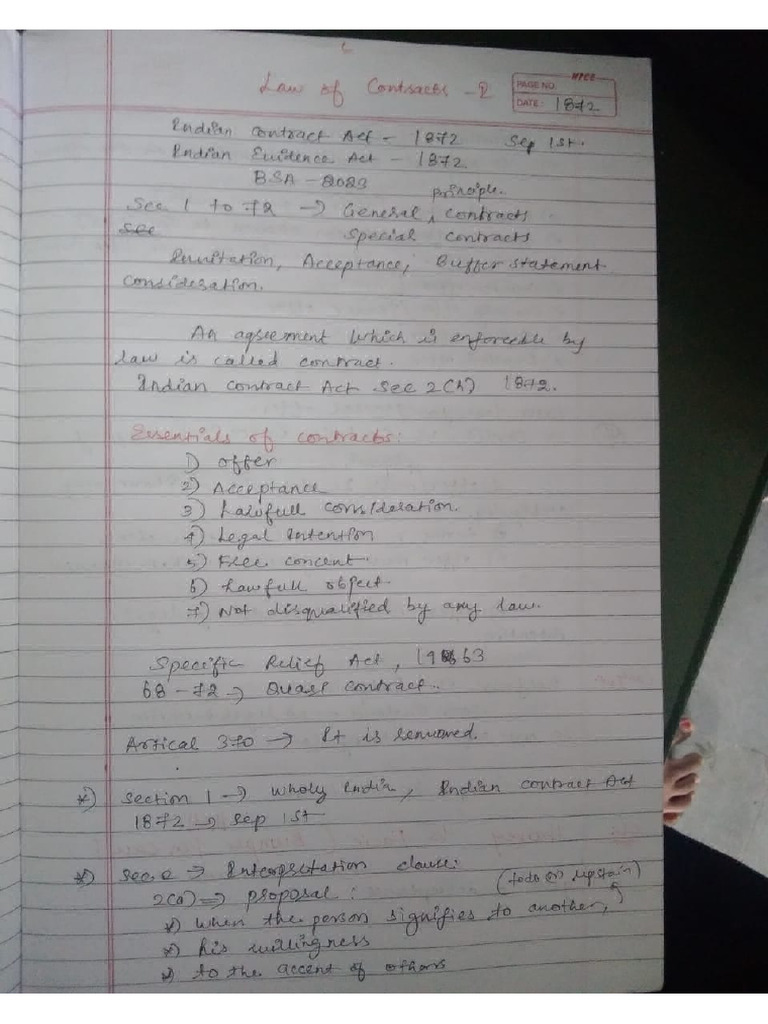 Law of Contracts - I
NICE
PAGE NO.
DATE: 1872
Indian contract Act - 1872 Sep 1st.
Indian Evidence Act - 1872
BSA - 2023
principle.
Sec 1 to 72 → General, contracts
Sec special contracts
Invitation, Acceptance, Buffer statement
consideration.
An agreement which is enforceble by
law is called contract.
Indian contract Act Sec 2(h) 1872.
Essentials of contracts:
1) offer
2) Acceptance
3) Lawfull consideration.
4) Legal Intention
5) Free concent.
6) Lawfull object.
7) Not disqualified by any law.
Specific Relief Act, 1963
68-72 → Quasi contract.
Artical 370 → It is removed.
*) Section 1 → wholy India, Indian contract Act
1872 → Sep 1st
*) Sec.2 → Interpretation clause:
2(a) ⇒ proposal: (to do or upstain)
*) when the person signifies to another,
*) his willingness
*) to the accent of others